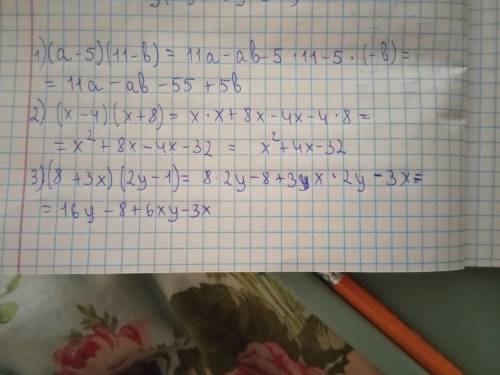 1) (a-5)(11-b) = 11a-ab-5·11-5·(-b)=
= 11a-ab-55+5b
2) (x-4)(x+8) = x·x+8x-4x-4·8=
= x²+8x-4x-32 = x²+4x-32
3) (8+3x)(2y-1)= 8·2y-8+3x·2y-3x=
= 16y-8+6xy-3x